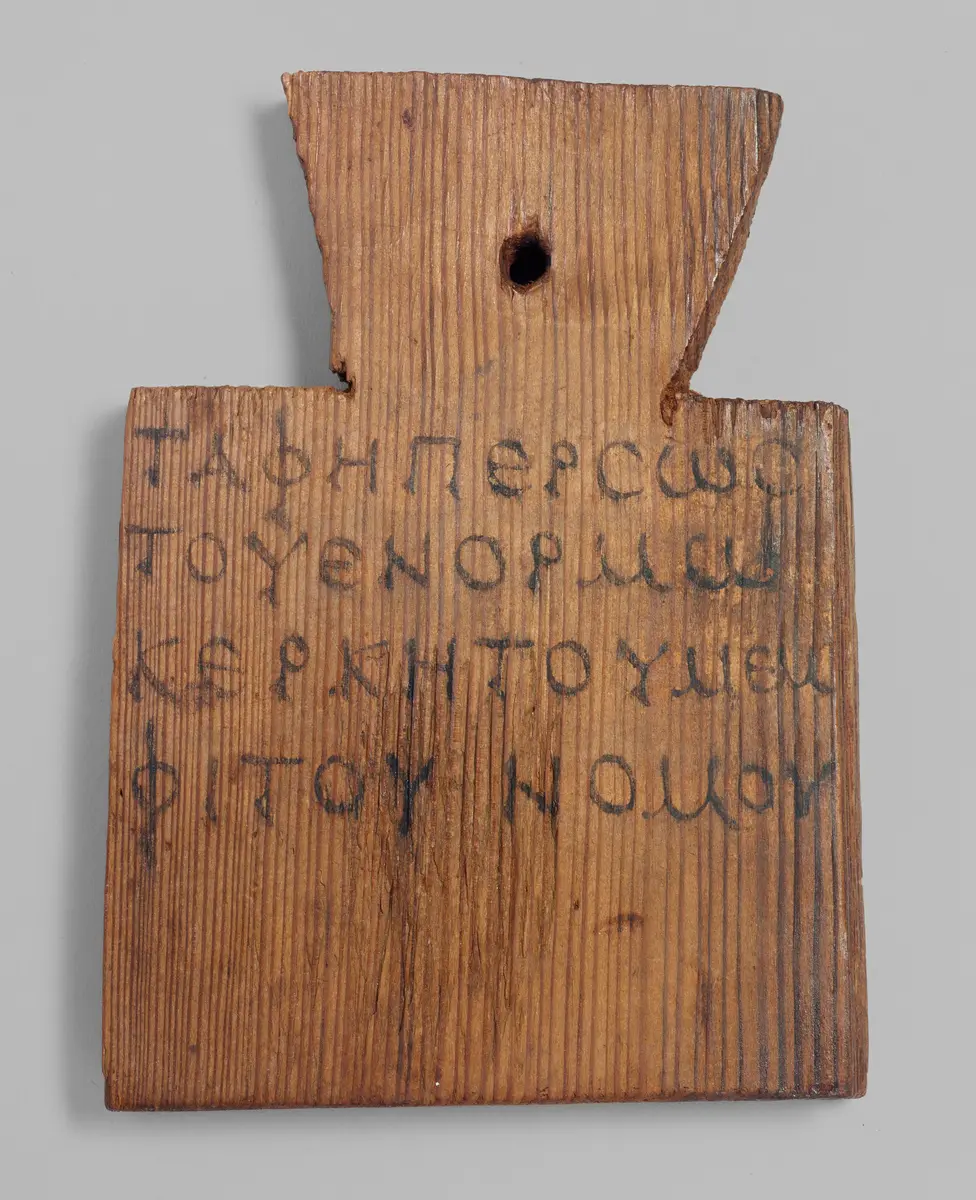 ΤΑΦΗΠΕΡϹΩϹ
ΤΟΥΕΝΟΡΜΩ
ΚΕΡΚΗΤΟΥΜΕΜ
ΦΙΤΟΥ ΝΟΜΟΥ